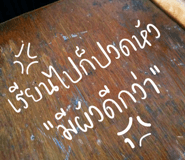 เรียนไปก็ปวดหัว
"มีผัวดีกว่า"